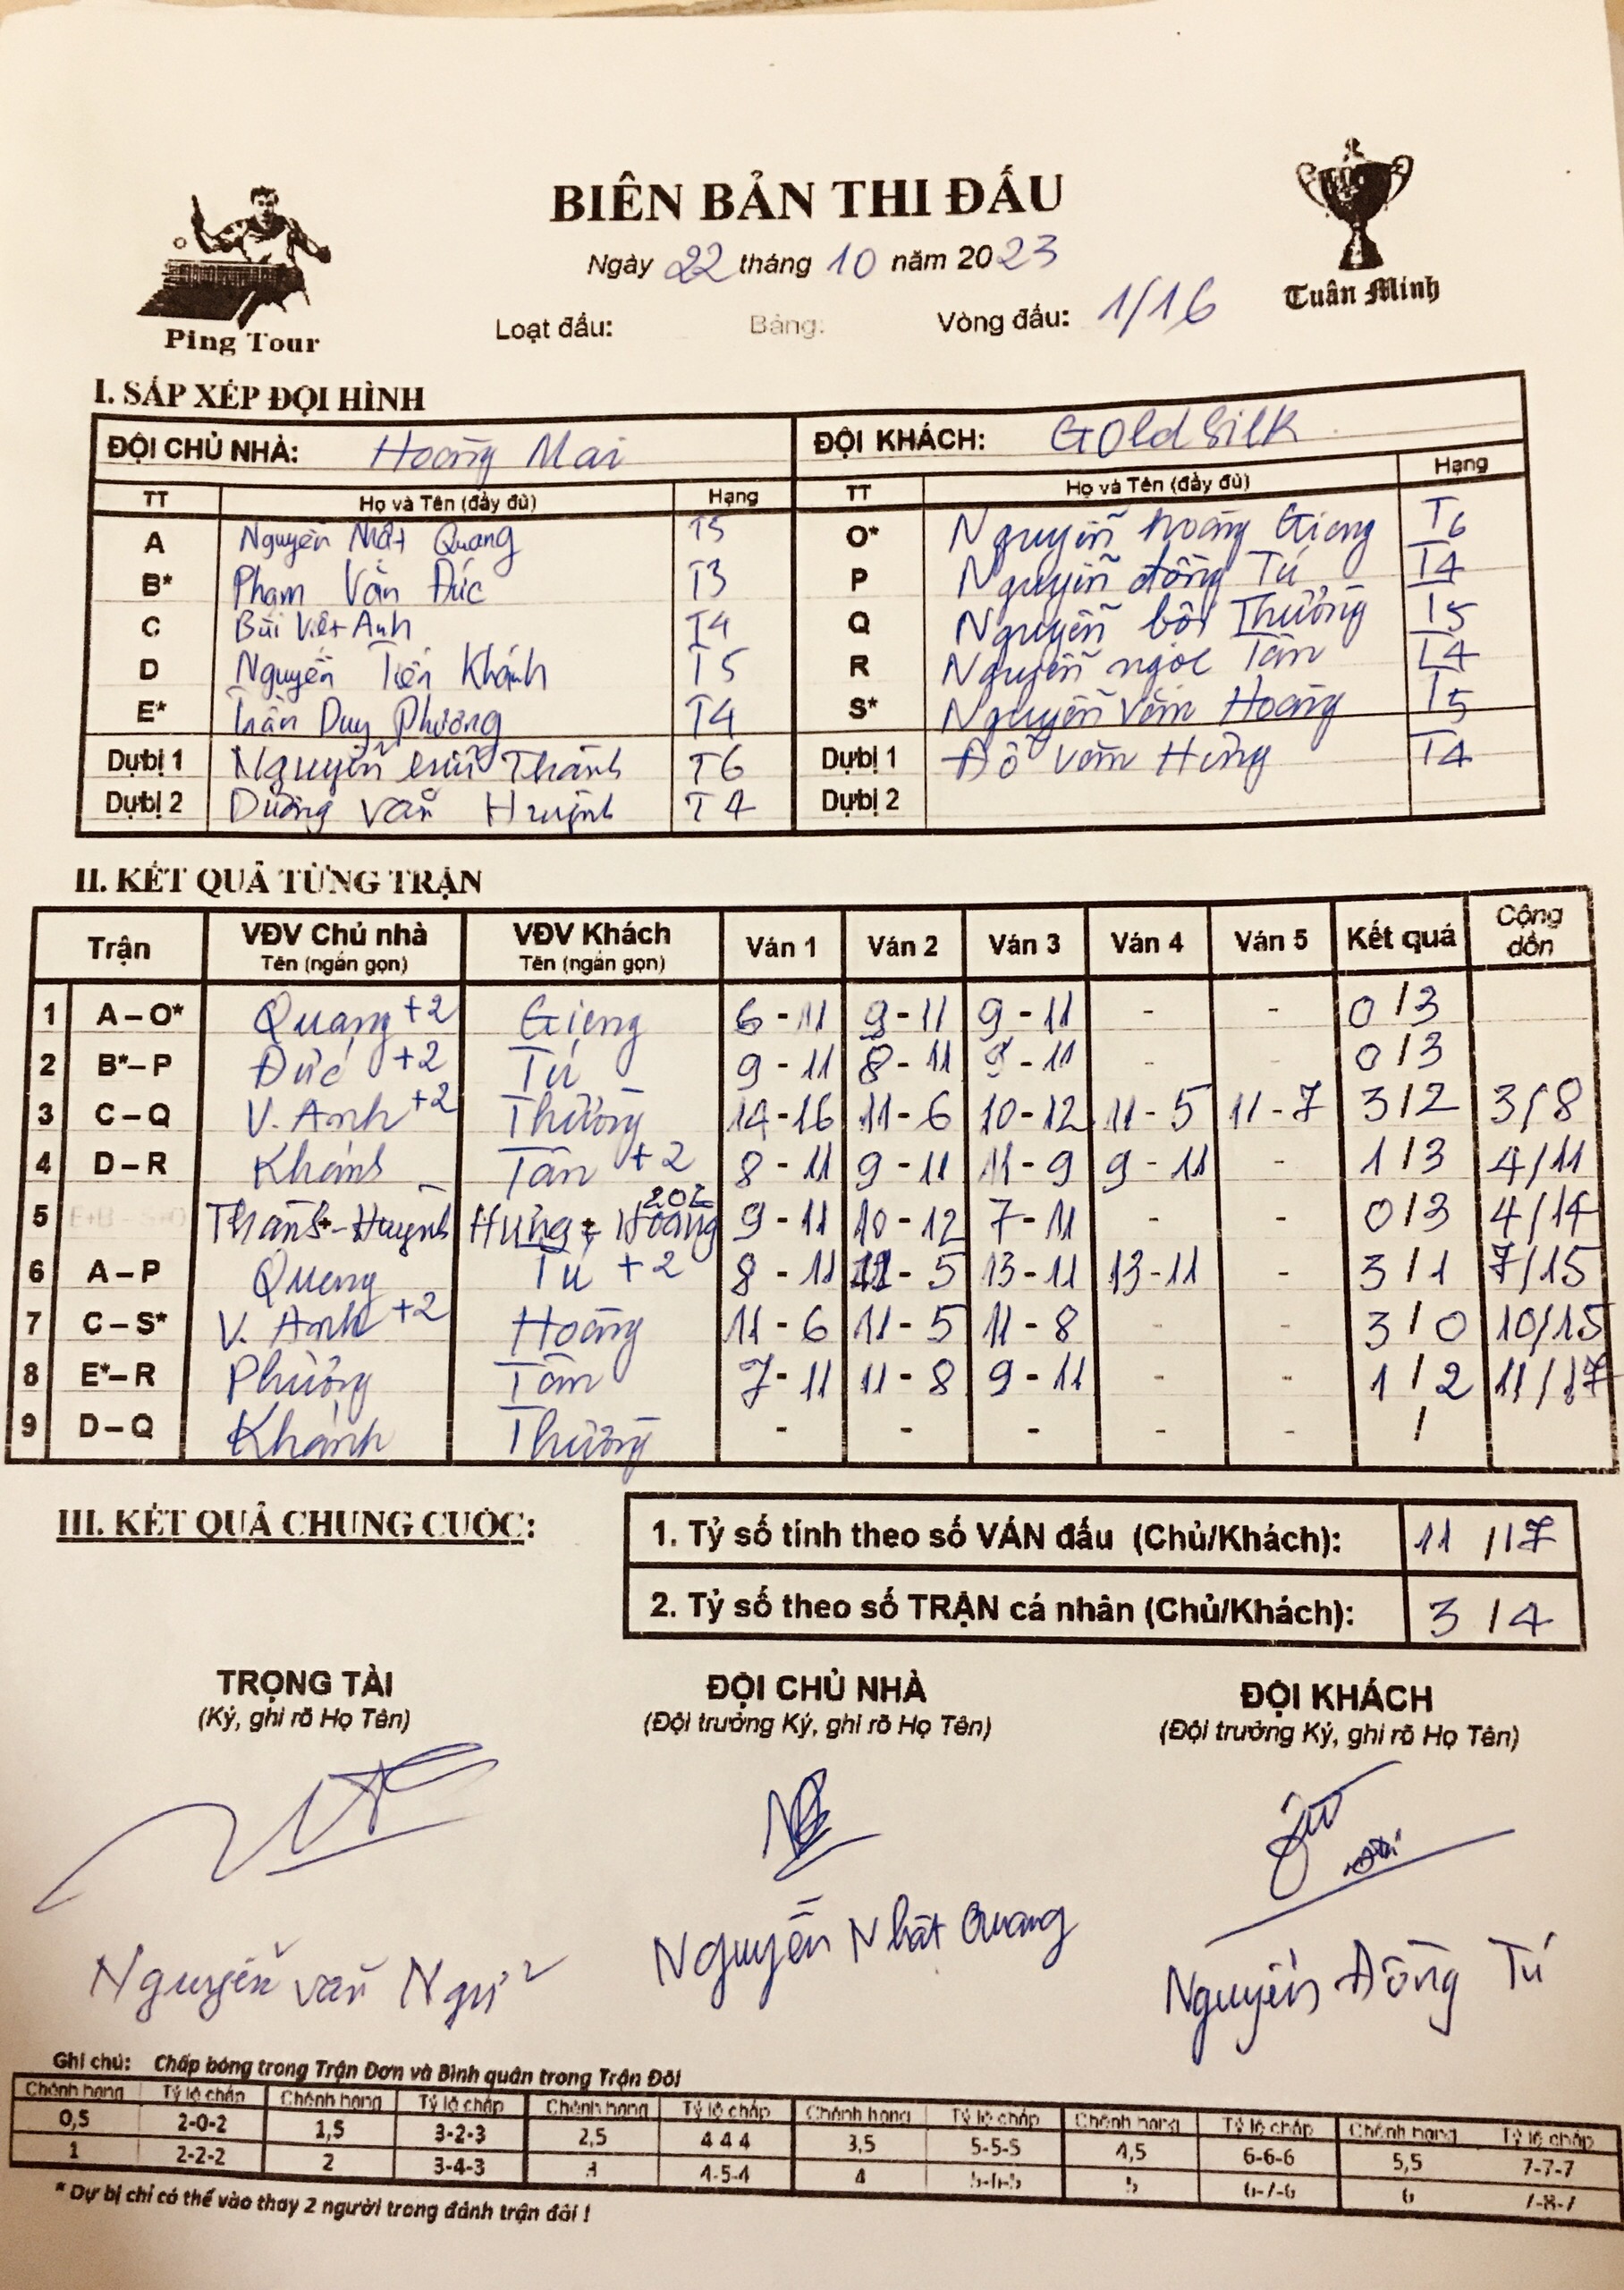 BIÊN BẢN THI ĐẤU
Ngày 22 tháng 10 năm 2023
Ping Tour
Tuấn Minh
Loạt đấu: Bảng: Vòng đấu: 1/16
I. SẮP XẾP ĐỘI HÌNH
ĐỘI CHỦ NHÀ: Hoàng Mai ĐỘI KHÁCH: Gold Silk
TT Họ và Tên (đầy đủ) Hạng TT Họ và Tên (đầy đủ) Hạng
A Nguyễn Nhật Quang T5 O* Nguyễn hoàng Giang T6
B* Phạm Văn Đức T3 P Nguyễn đồng Tú T4
C Bùi Việt Anh T4 Q Nguyễn bội Thưởng T5
D Nguyễn Tiến Khánh T5 R Nguyễn ngọc Tân T4
E* Trần Duy Phương T4 S* Nguyễn văn Hoàng T5
Dự bị 1 Nguyễn Thành T6 Dự bị 1 Đỗ văn Hưng T4
Dự bị 2 Dương Văn Huỳnh T4 Dự bị 2
II. KẾT QUẢ TỪNG TRẬN
Trận VĐV Chủ nhà Tên (ngắn gọn) VĐV Khách Tên (ngắn gọn) Ván 1 Ván 2 Ván 3 Ván 4 Ván 5 Kết quả Cộng dồn
1 A – O* Quang +2 Giang 6 - 11 9 - 11 9 - 11 - - 0 / 3
2 B* – P Đức +2 Tú 9 - 11 8 - 11 9 - 11 - - 0 / 3
3 C – Q V. Anh +2 Thưởng 14 - 16 11 - 6 10 - 12 11 - 5 11 - 7 3 / 2 3 / 8
4 D – R Khánh Tân +2 8 - 11 9 - 11 11 - 9 9 - 11 - 1 / 3 4 / 11
5 E+B – S+O Thành - Huỳnh Hưng + Hoàng 202 9 - 11 10 - 12 7 - 11 - - 0 / 3 4 / 14
6 A – P Quang Tú +2 8 - 11 11 - 5 13 - 11 13 - 11 - 3 / 1 7 / 15
7 C – S* V. Anh +2 Hoàng 11 - 6 11 - 5 11 - 8 - - 3 / 0 10 / 15
8 E* – R Phương Tân 7 - 11 11 - 8 9 - 11 - - 1 / 2 11 / 17
9 D – Q Khánh Thưởng - - - - - /
III. KẾT QUẢ CHUNG CUỘC:
1. Tỷ số tính theo số VÁN đấu (Chủ/Khách): 11 / 17
2. Tỷ số theo số TRẬN cá nhân (Chủ/Khách): 3 / 4
TRỌNG TÀI ĐỘI CHỦ NHÀ ĐỘI KHÁCH
(Ký, ghi rõ Họ Tên) (Đội trưởng Ký, ghi rõ Họ Tên) (Đội trưởng Ký, ghi rõ Họ Tên)
Nguyễn văn Nguyễn Nhật Quang Nguyễn Đồng Tú
Ghi chú: Chấp bóng trong Trận Đơn và Bình quân trong Trận Đôi
Chênh hạng Tỷ lệ chấp Chênh hạng Tỷ lệ chấp Chênh hạng Tỷ lệ chấp Chênh hạng Tỷ lệ chấp Chênh hạng Tỷ lệ chấp Chênh hạng Tỷ lệ chấp
0,5 2-0-2 1,5 3-2-3 2,5 4-4-4 3,5 5-5-5 4,5 6-6-6 5,5 7-7-7
1 2-2-2 2 3-4-3 3 4-5-4 4 5-6-5 5 6-7-6 6 7-8-7
* Dự bị chỉ có thể vào thay 2 người trong đánh trận đôi !